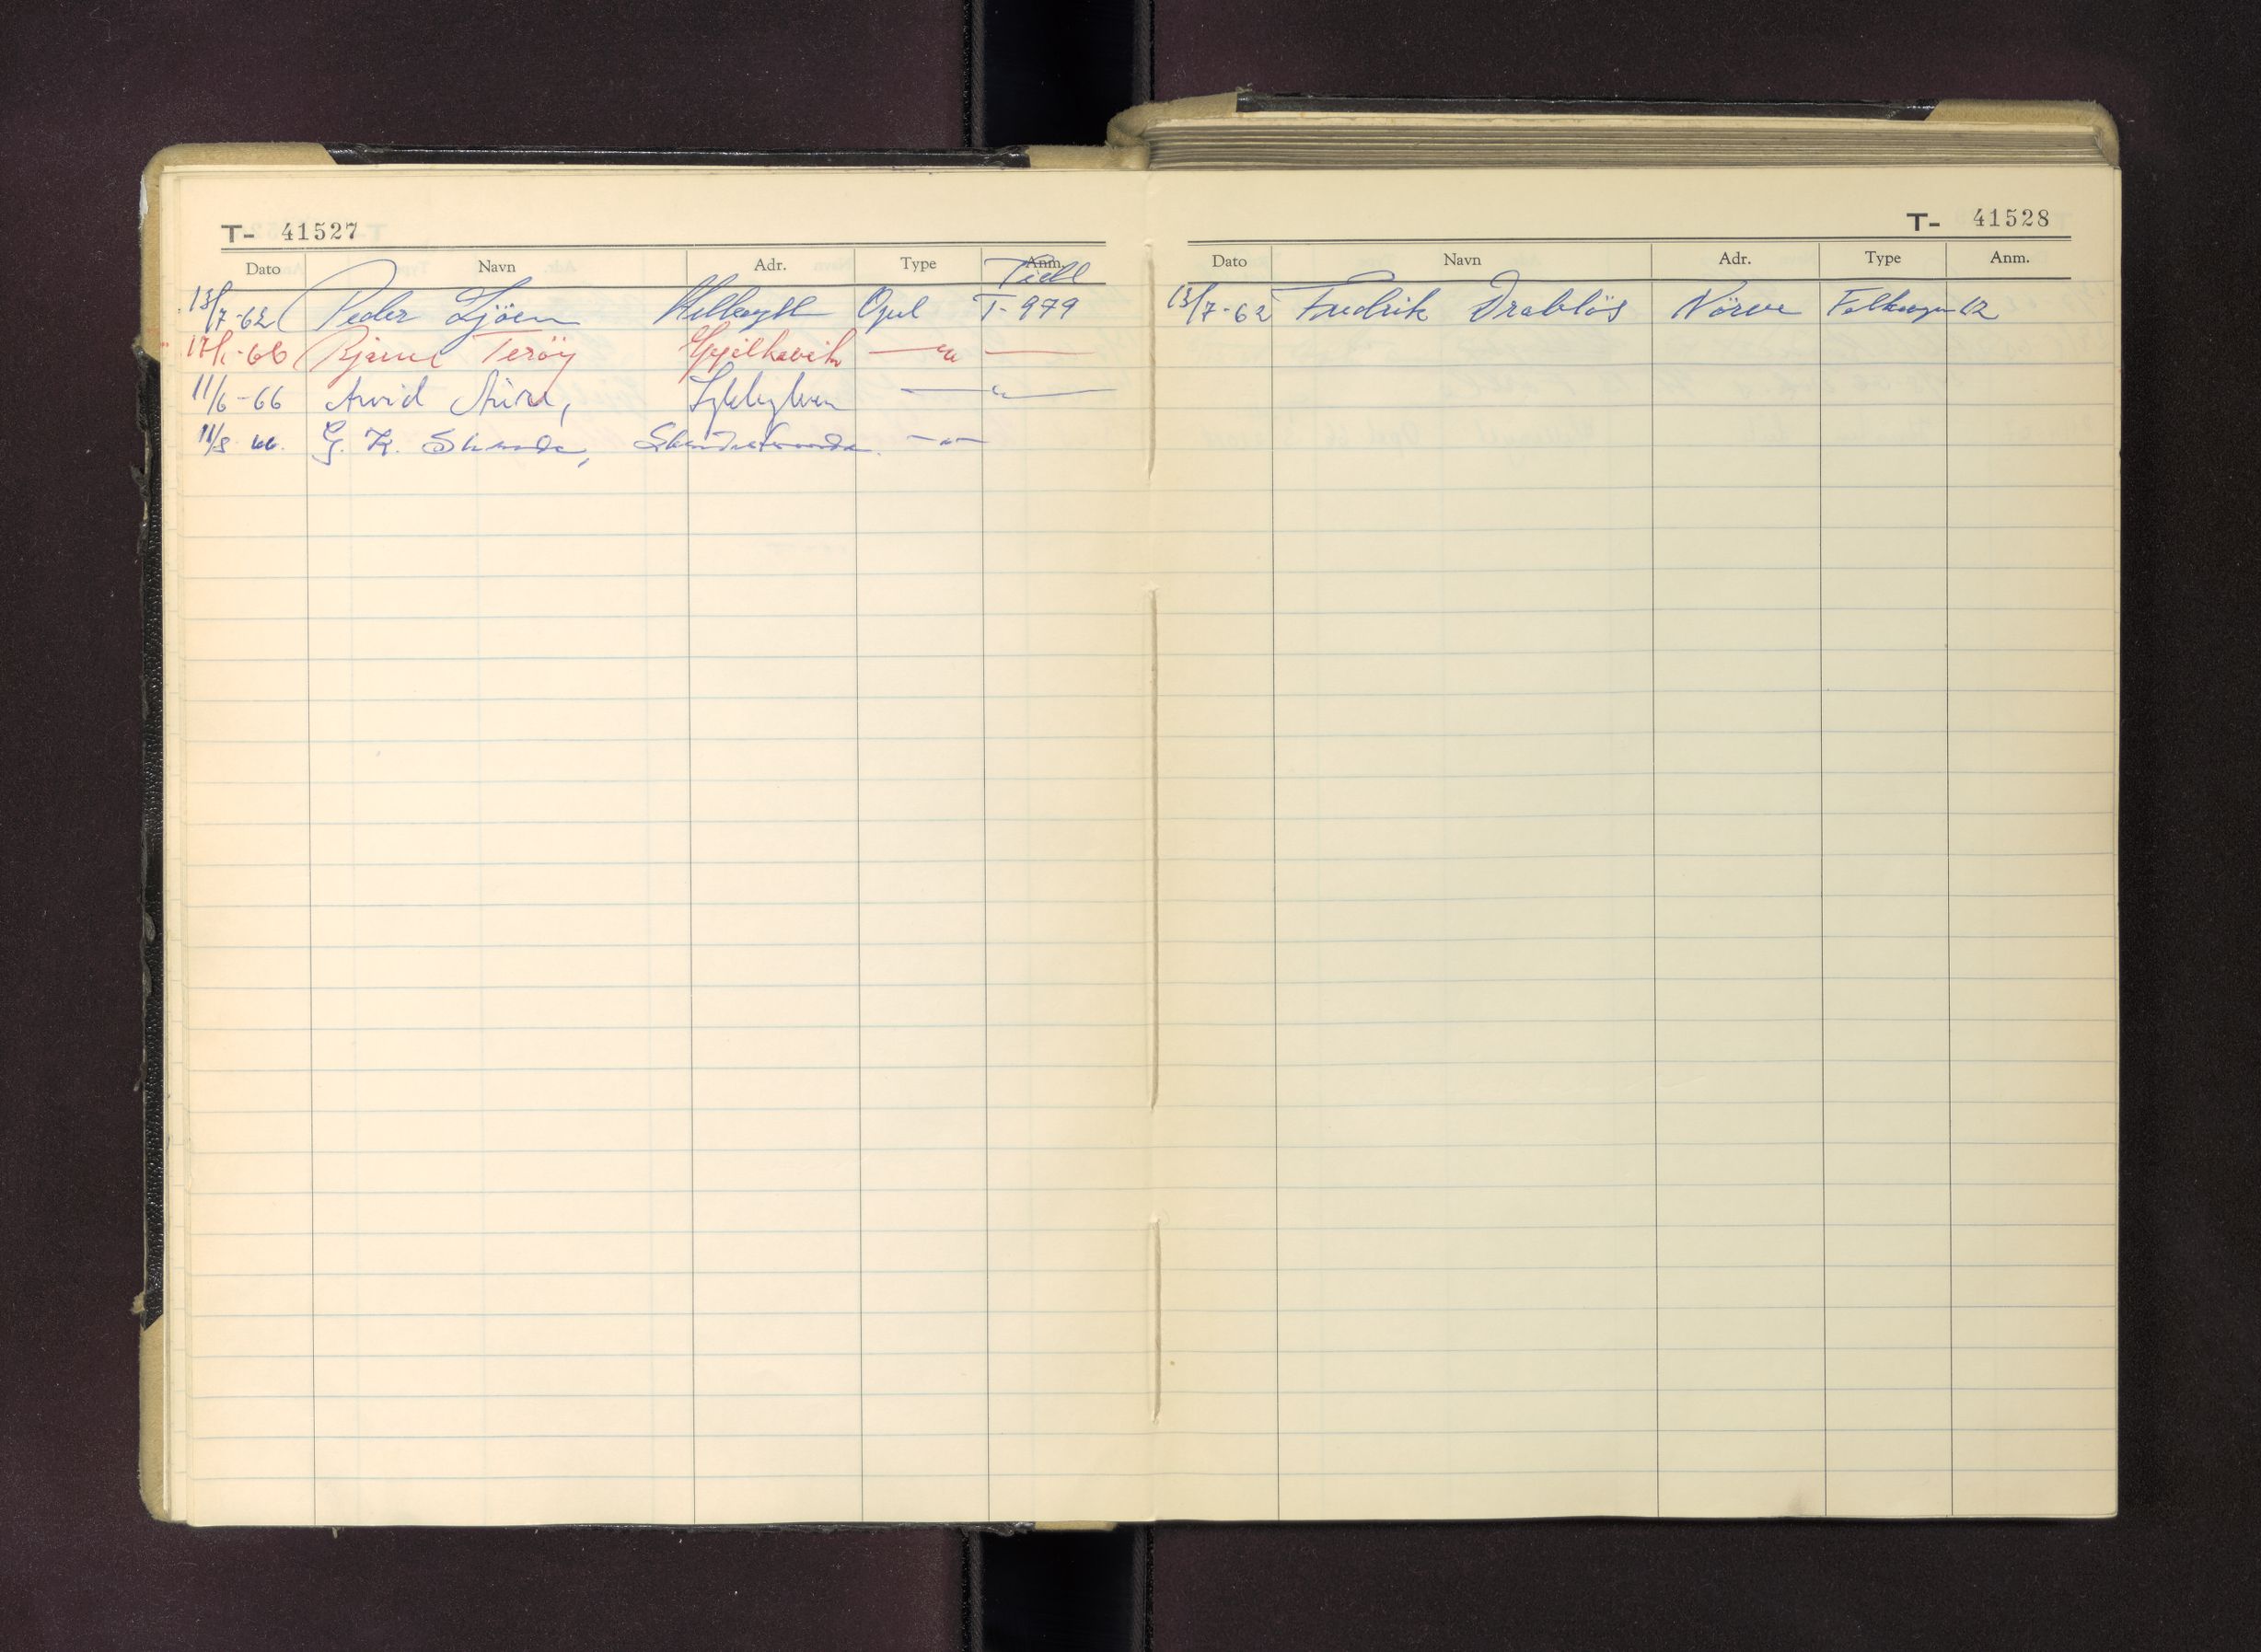 T- 41527
Dato Navn Adr. Type Anm.
Tidl
13/7-62 Peder Ljöen Hellesylt Opel T-979
17/1-66 Bjarne Teröy Gjelkavik —"—
11/6-66 Arvid Aure, Sykkylven —"—
11/8 66. G. K. Skrede, —"—
T- 41528
Dato Navn Adr. Type Anm.
13/7-62 Fredrik Drabløs Nörve Folkevogn 12